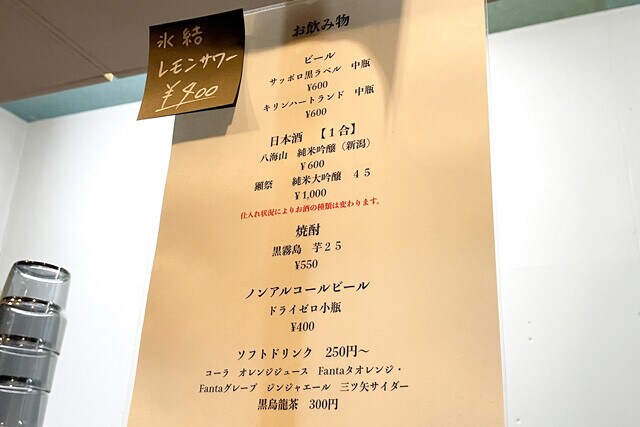 氷結
レモンサワー
¥400
お飲み物
ビール
サッポロ黒ラベル 中瓶
¥600
キリンハートランド 中瓶
¥600
日本酒 【1合】
八海山 純米吟醸(新潟)
¥600
獺祭 純米大吟醸 45
¥1,000
仕入れ状況によりお酒の種類は変わります。
焼酎
黒霧島 芋25
¥550
ノンアルコールビール
ドライゼロ小瓶
¥400
ソフトドリンク 250円〜
コーラ オレンジジュース Fantaタオレンジ・
Fantaグレープ ジンジャエール 三ツ矢サイダー
黒烏龍茶 300円